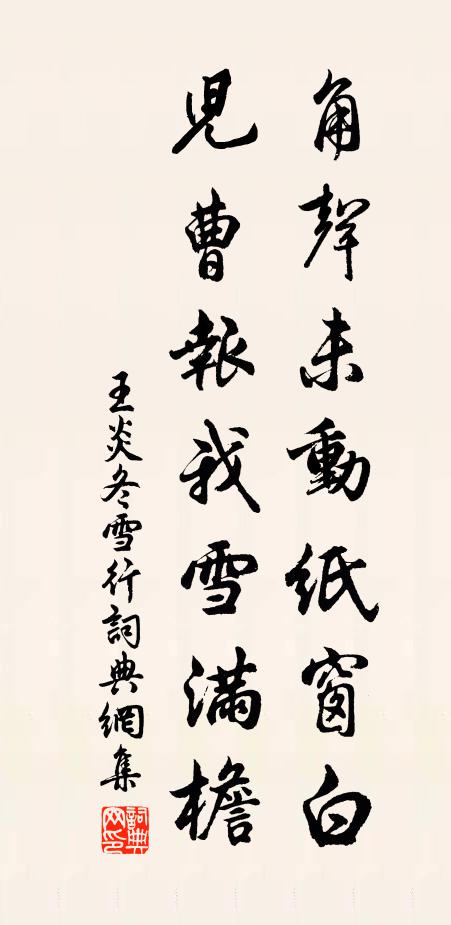 角聲未動紙窗白
兒曹報我雪滿檐
王炎冬雪行詞典網集
詞典网印